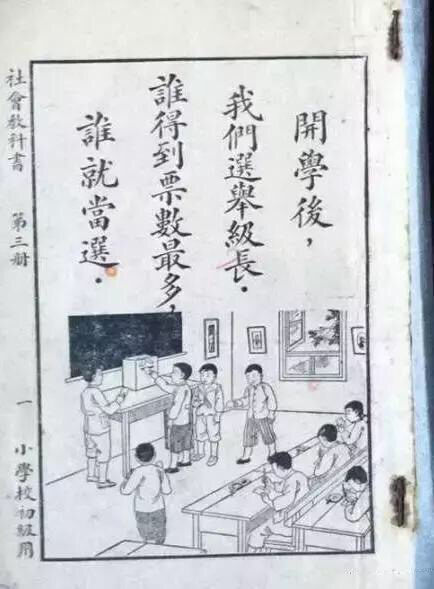 開學後，
我們選舉級長．
誰得到票數最多，
誰就當選．
社會教科書 第三册 一 小學校初級用